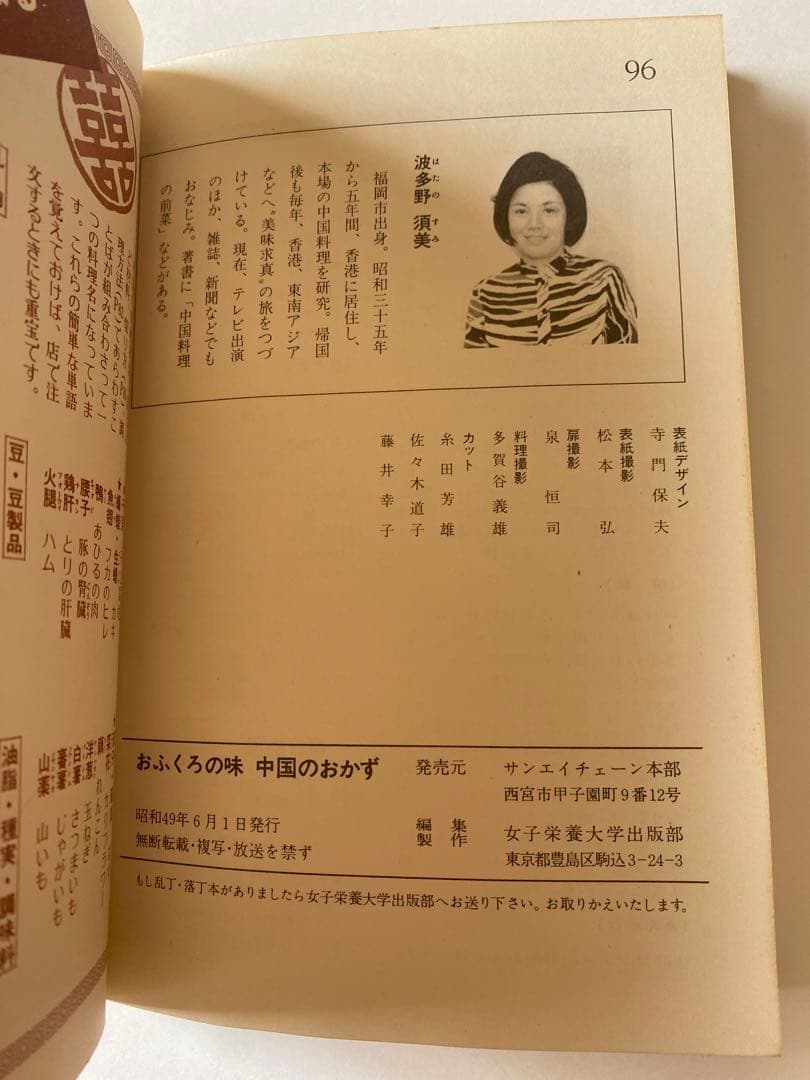 96
波多野 須美
はたの すみ
福岡市出身。昭和三十五年
から五年間、香港に居住し、
本場の中国料理を研究。帰国
後も毎年、香港、東南アジア
などへ〝美味求真〟の旅をつづ
けている。現在、テレビ出演
のほか、雑誌、新聞などでも
おなじみ。著書に「中国料理
の前菜」などがある。
表紙デザイン
寺門保夫
表紙撮影
松本 弘
扉撮影
泉 恒司
料理撮影
多賀谷義雄
カット
糸田芳雄
佐々木道子
藤井幸子
おふくろの味 中国のおかず
昭和49年6月1日発行
無断転載・複写・放送を禁ず
発売元 サンエイチェーン本部
西宮市甲子園町9番12号
編集 製作 女子栄養大学出版部
東京都豊島区駒込3-24-3
もし乱丁・落丁本がありましたら女子栄養大学出版部へお送り下さい。お取りかえいたします。
囍
とばが組み合わさって一
つの料理名になっていま
す。これらの簡単な単語
を覚えておけば、店で注
文するときにも重宝です。
魚翅 フカのヒレ
鴨 あひるの肉
腰子 豚の腎臓
鶏肝 とりの肝臓
火腿 ハム
豆・豆製品
洋葱 玉ねぎ
白薯 さつまいも
蕃薯 じゃがいも
山薬 山いも
油脂・種実・調味料